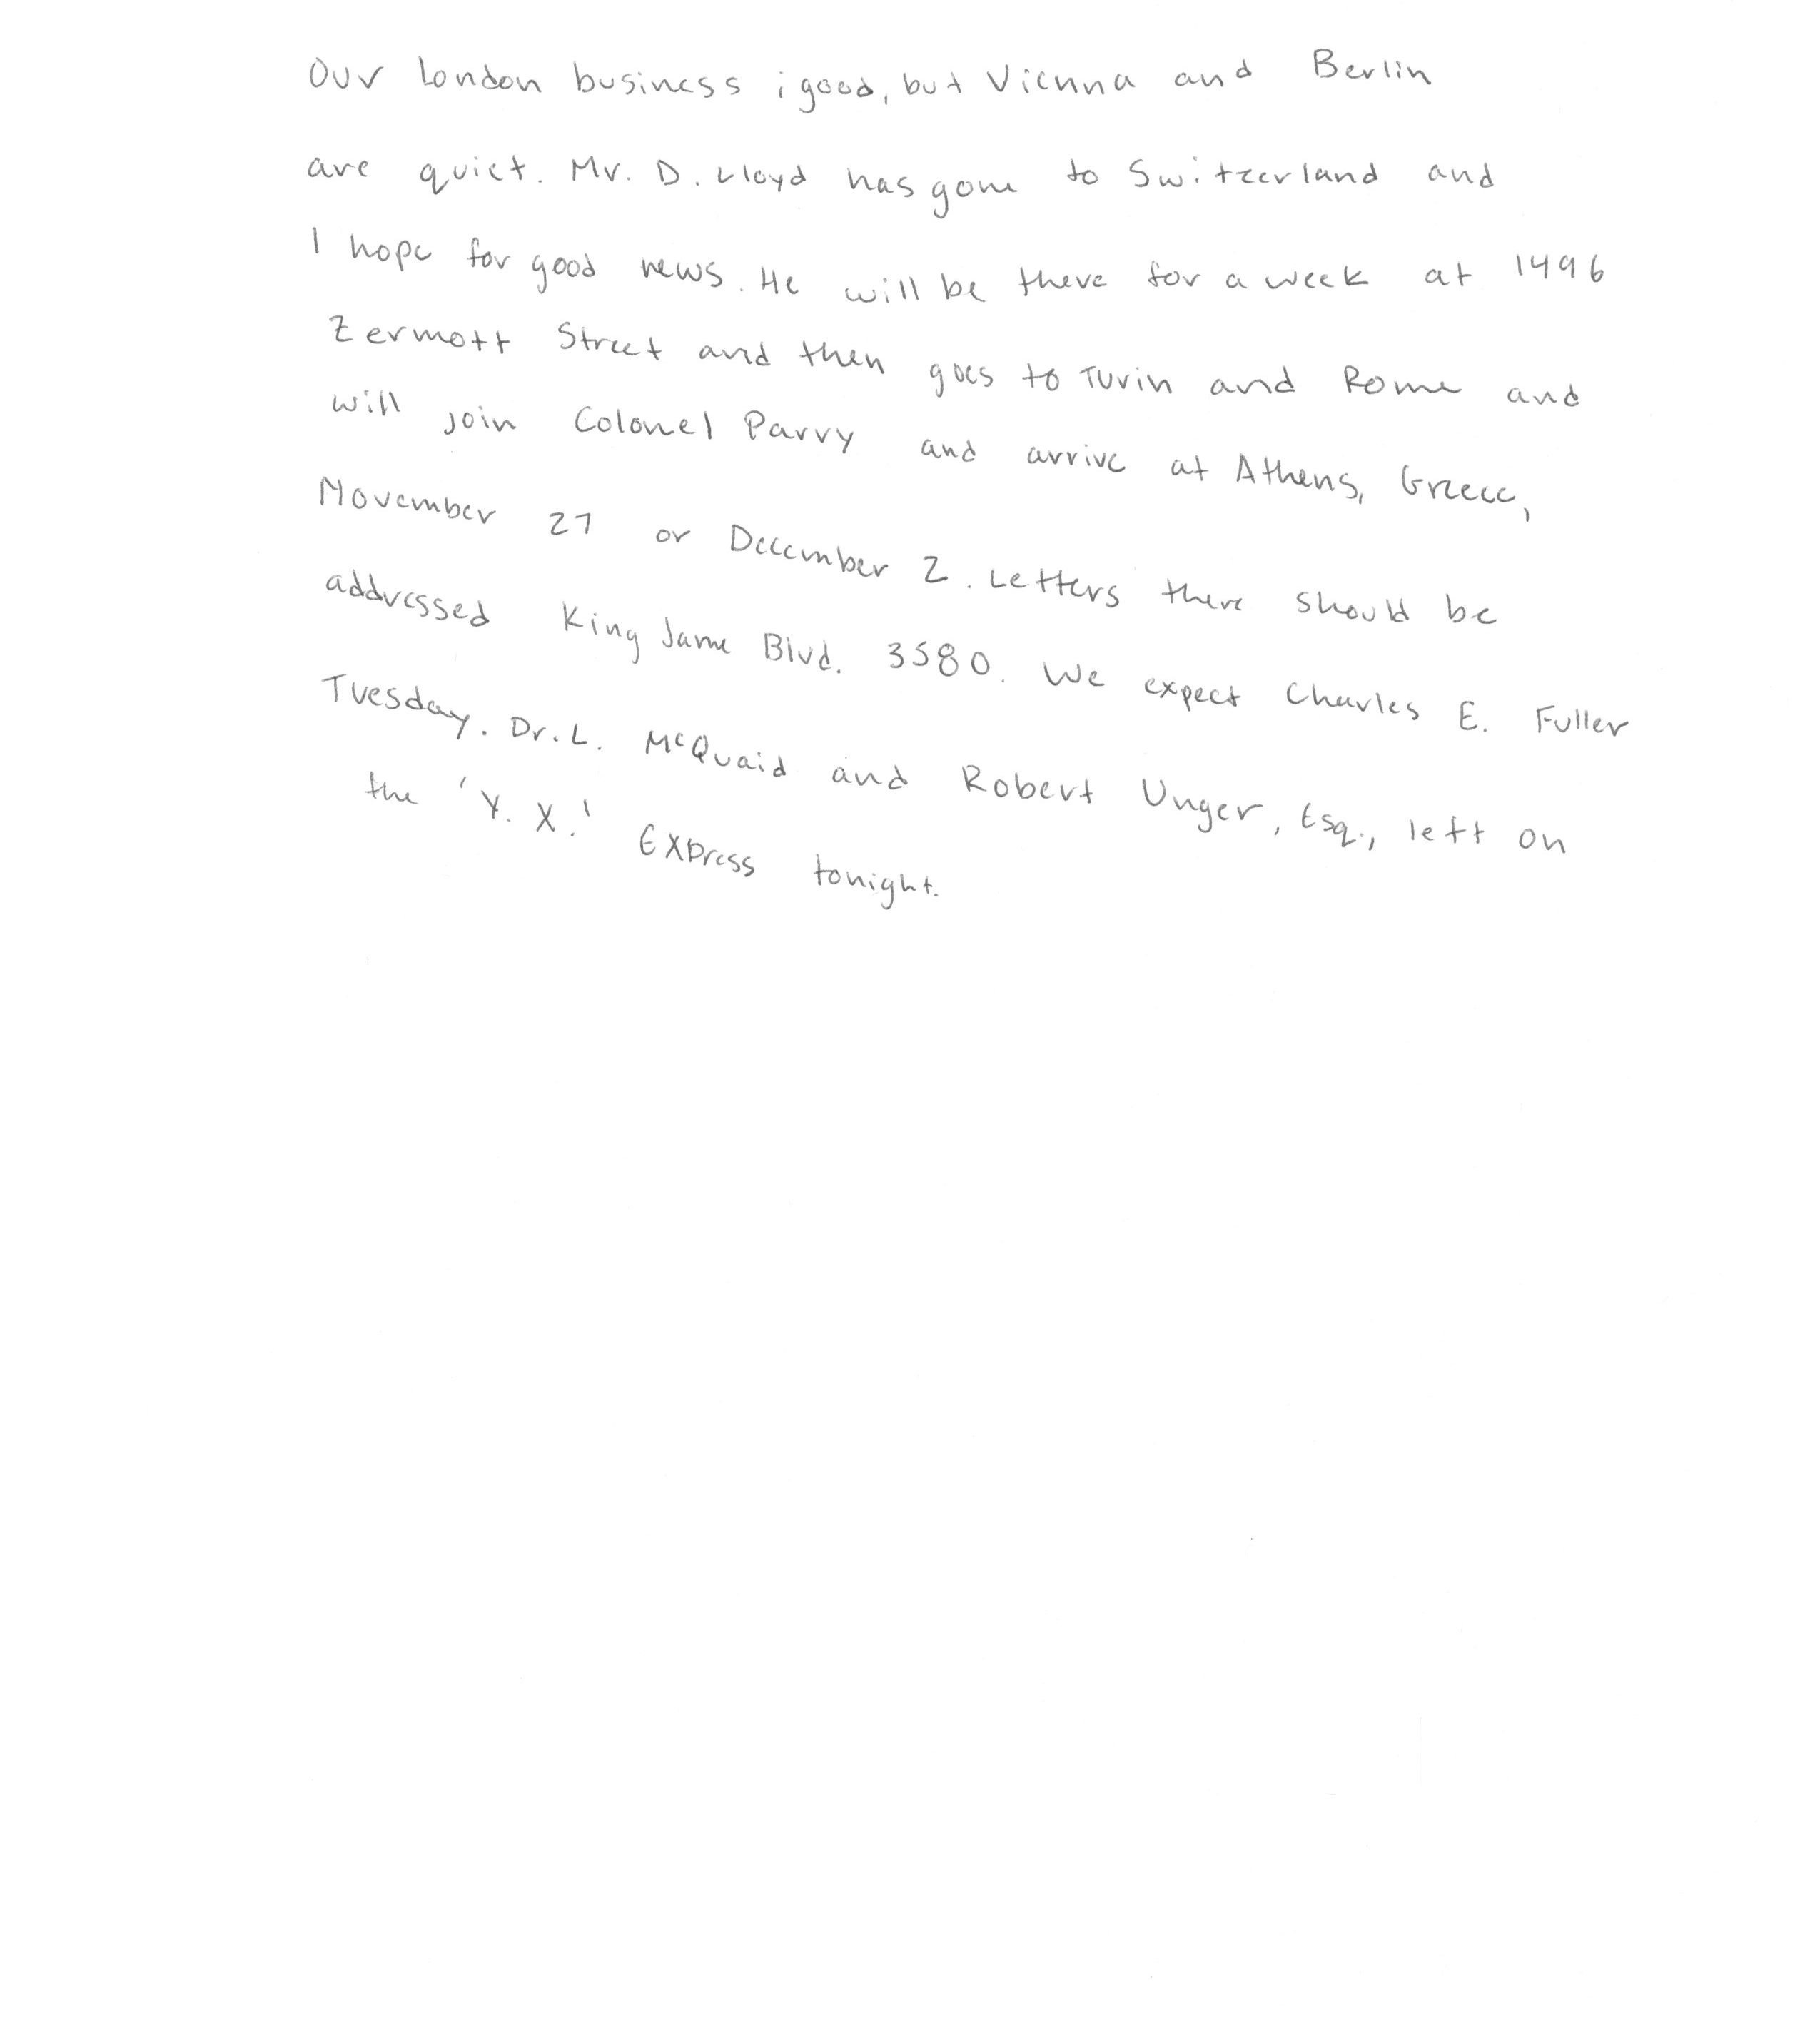 Our London business i good, but Vienna and Berlin
are quiet. Mr. D. Lloyd has gone to Switzerland and
I hope for good news. He will be there for a week at 1496
Zermott Street and then goes to Turin and Rome and
will join Colonel Parry and arrive at Athens, Greece,
November 27 or December 2. Letters there should be
addressed King Jame Blvd. 3580. We expect Charles E. Fuller
Tuesday. Dr. L. McQuaid and Robert Unger, Esq., left on
the 'Y. X.' Express tonight.